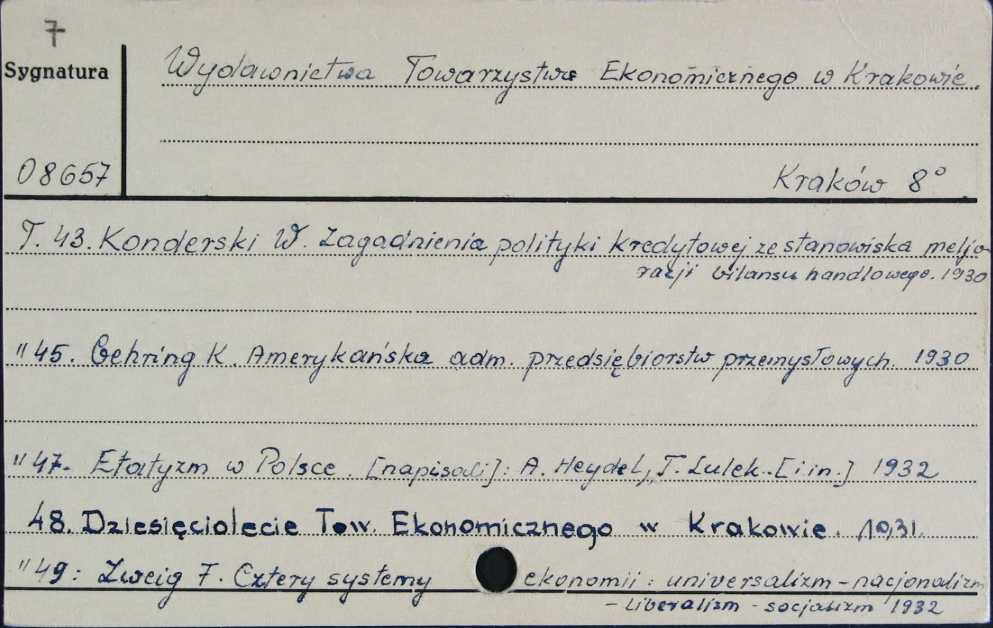 7
Sygnatura
Wydawnictwa Towarzystwa Ekonomicznego w Krakowie.
08657
Kraków 8°
T. 43. Konderski W. Zagadnienia polityki kredytowej ze stanowiska meljo-
racji bilansu handlowego. 1930
" 45. Gehring K. Amerykańska adm. przedsiębiorstw przemysłowych. 1930
" 47. Etatyzm w Polsce. [napisali]: A. Heydel, T. Lulek. [i in.] 1932
48. Dziesięciolecie Tow. Ekonomicznego w Krakowie. 1931.
" 49: Zweig F. Cztery systemy ekonomii: uniwersalizm - nacjonalizm
- liberalizm - socjalizm 1932